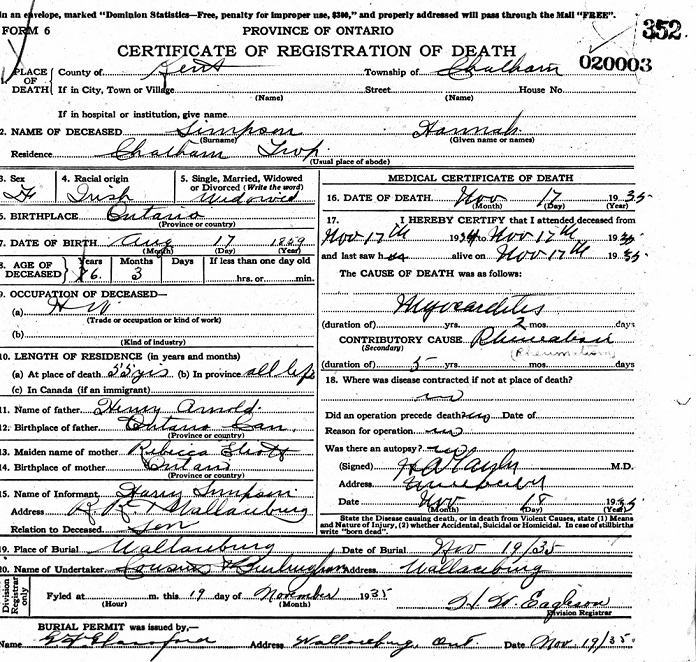 in an envelope, marked "Dominion Statistics—Free, penalty for improper use, $300," and properly addressed will pass through the Mail "FREE".
FORM 6 PROVINCE OF ONTARIO 352
CERTIFICATE OF REGISTRATION OF DEATH
020003
PLACE OF DEATH County of Kent Township of Chatham
If in City, Town or Village (Name) Street (Name) House No.
If in hospital or institution, give name
2. NAME OF DECEASED Simpson (Surname) Hannah (Given name or names)
Residence Chatham Twp. (Usual place of abode)
3. Sex 4. Racial origin 5. Single, Married, Widowed or Divorced (Write the word)
F Irish Widowed
6. BIRTHPLACE Ontario
(Province or country)
7. DATE OF BIRTH Aug 17 1859
(Month) (Day) (Year)
8. AGE OF DECEASED Years Months Days If less than one day old
76 3 hrs. or min.
9. OCCUPATION OF DECEASED—
(a) H W
(Trade or occupation or kind of work)
(b)
(Kind of industry)
10. LENGTH OF RESIDENCE (in years and months)
(a) At place of death 55 yrs (b) In province all life
(c) In Canada (if an immigrant)
11. Name of father Henry Arnold
12. Birthplace of father Ontario Can.
(Province or country)
13. Maiden name of mother Rebecca
14. Birthplace of mother Ontario
(Province or country)
15. Name of Informant Harry Simpson
Address Wallaceburg
Relation to Deceased Son
MEDICAL CERTIFICATE OF DEATH
16. DATE OF DEATH Nov 17 1935
(Month) (Day) (Year)
17. I HEREBY CERTIFY that I attended deceased from
Nov 17th 1934 to Nov 17th 1935
and last saw h alive on Nov 17th 1935
The CAUSE OF DEATH was as follows:
Myocarditis
(duration of) yrs. 2 mos. days
CONTRIBUTORY CAUSE
(Secondary)
(Rheumatism)
(duration of) 5 yrs. mos. days
18. Where was disease contracted if not at place of death?
no
Did an operation precede death? no Date of
Reason for operation no
Was there an autopsy? no
(Signed) M.D.
Address
Date Nov 18 1935
(Month) (Day) (Year)
State the Disease causing death, or in death from Violent Causes, state (1) Means
and Nature of Injury, (2) whether Accidental, Suicidal or Homicidal. In case of stillbirths
write "born dead".
19. Place of Burial Wallaceburg Date of Burial Nov 19/35
20. Name of Undertaker Cousins & Burlingham Address Wallaceburg
Division Registrar only
Fyled at m. this 19 day of November 1935
(Hour) (Month) Division Registrar
BURIAL PERMIT was issued by,—
Name Address Wallaceburg, Ont. Date Nov. 19/35